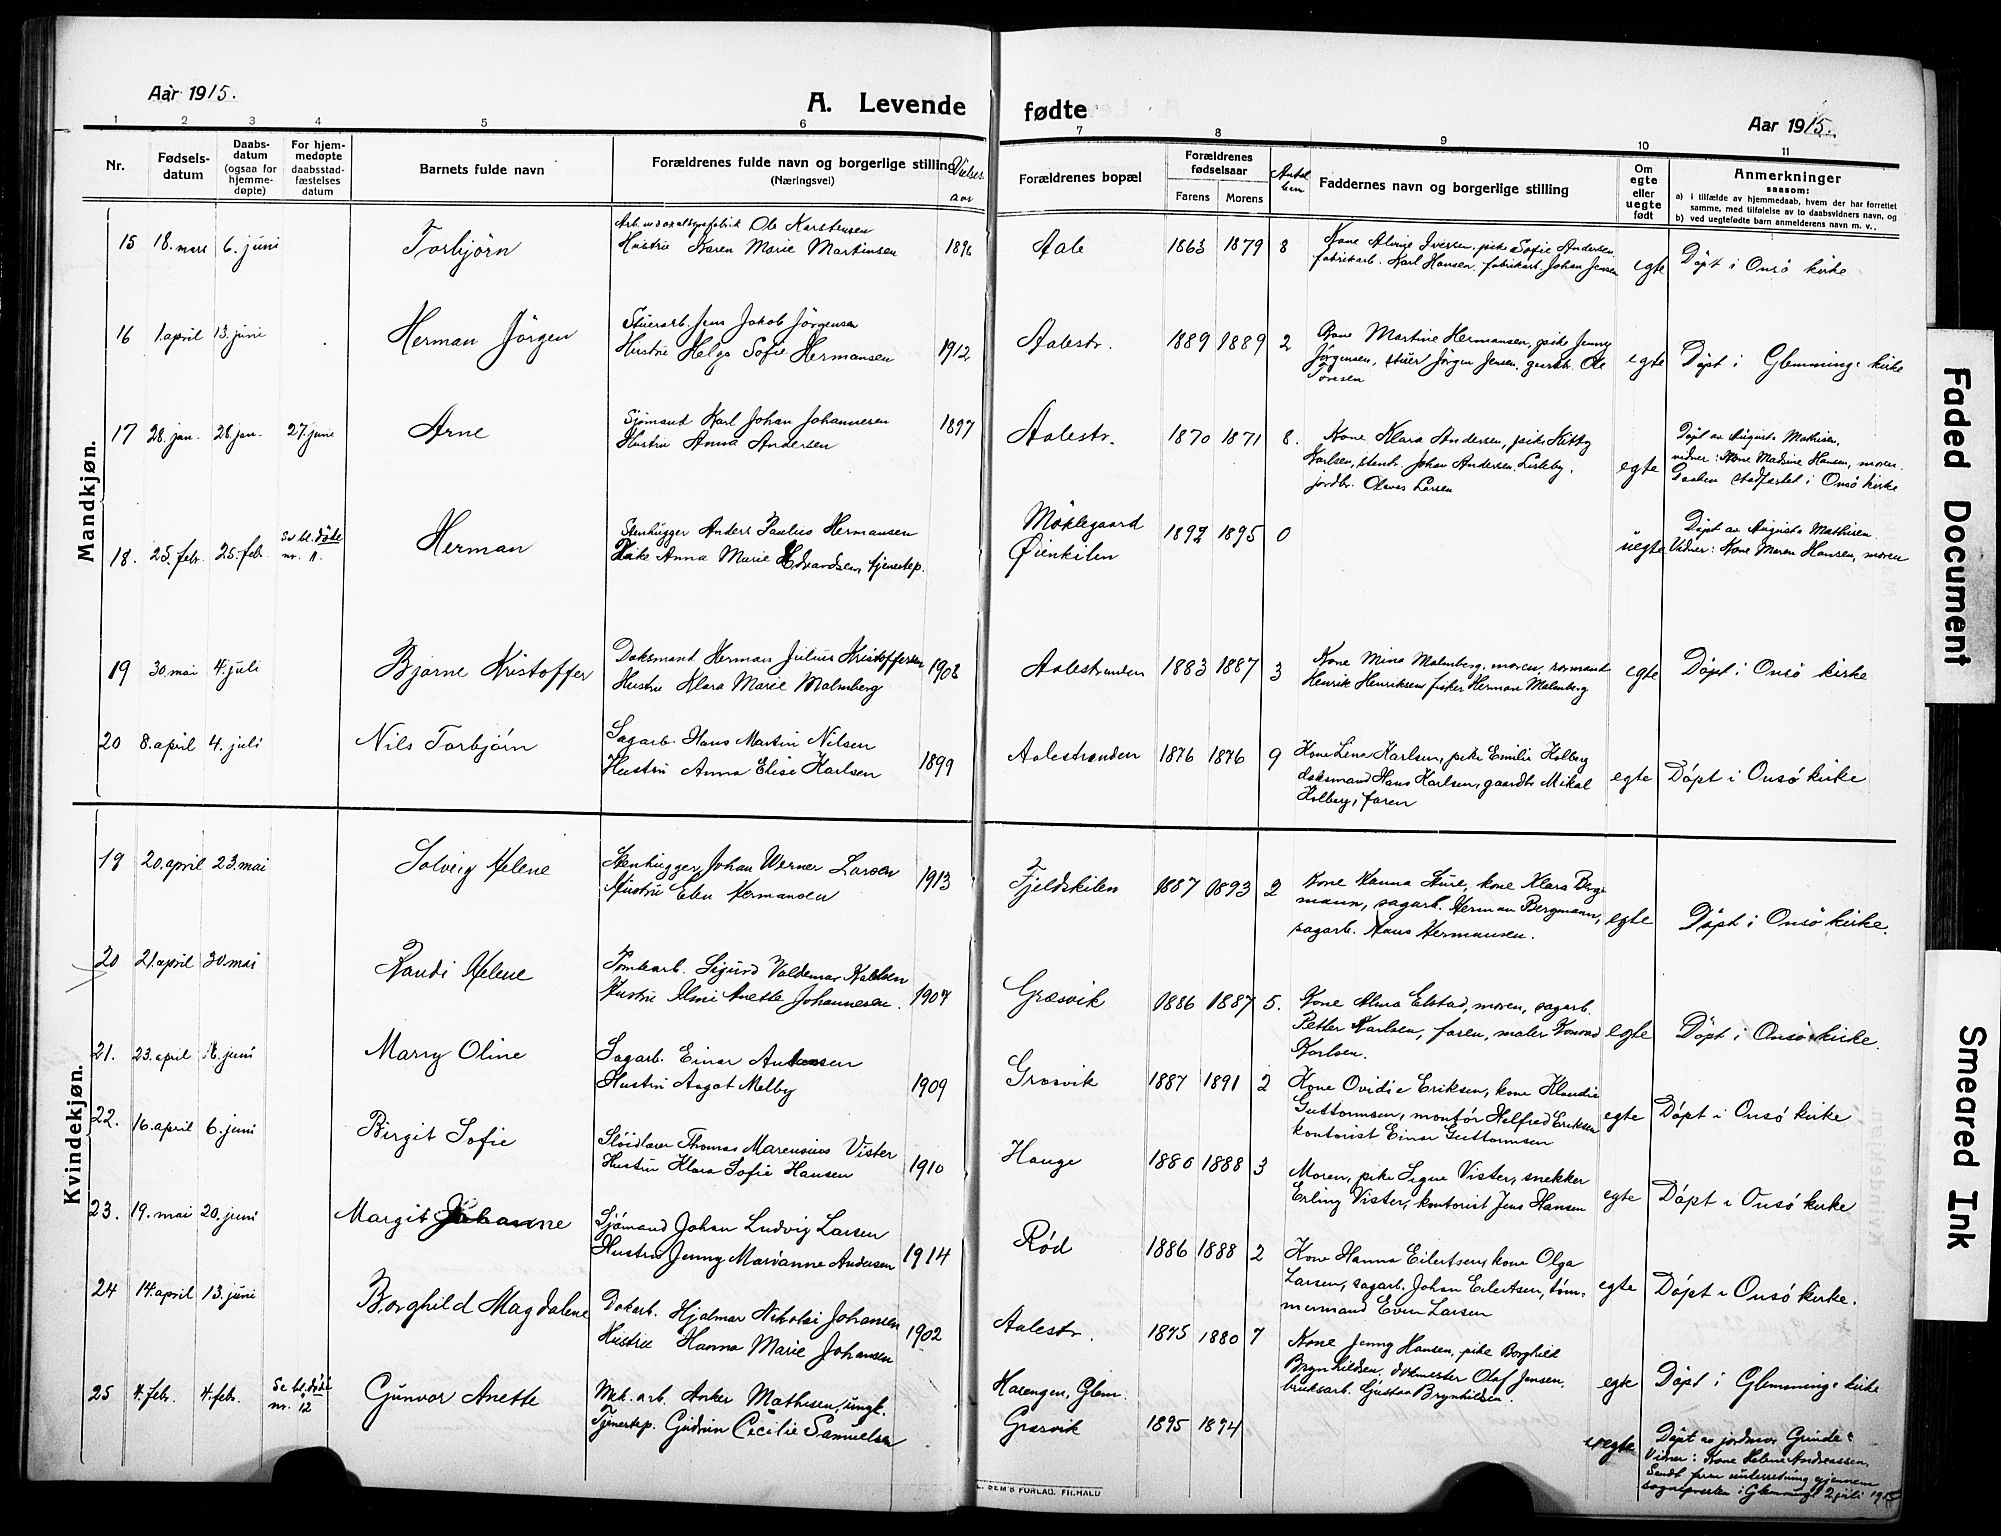 Aar 1915.
A. Levende
1 2 3 4 5 6
Nr.
Fødsels-
datum
Daabs-
datum
(ogsaa for
hjemme-
døpte)
For hjem-
medøpte
daabsstad-
fæstelses
datum
Barnets fulde navn
Forældrenes fulde navn og borgerlige stilling
(Næringsvei)
Vielses
aar
Mandkjøn.
15 18. mars 6. juni Torbjørn Ole Karstensen
Hustru Karen Marie Martinsen 1896
16 1. april 13. juni Herman Jörgen Stuerarb. Jens Jakob Jörgensen
Hustru Helga Sofie Hermansen 1912
17 28. jan. 28. jan. 27. juni Arne Sjømand Karl Johan Johannesen 1897
Hustru Anna Andersen
18. 25. febr. 25. febr. Se bl. døde
nr. 11. Herman Stenhugger Anders Paulius Hermansen
Pike Anna Marie Edvardsen, tjenestep.
19 30. mai 4. juli Bjarne Kristoffer Doksmand Herman Julius Kristoffersen 1908
Hustru Klara Marie Malmberg
20 8. april 4. juli Nils Torbjørn Sagarb. Hans Martin Nilsen
Hustru Anna Elise Karlsen 1899
Kvindekjøn.
19 20. april 23. mai Solveig Helene Stenhugger Johan Werner Larsen 1913
Hustru Elen Hermansen
20 21. april 30. mai Randi Helene Tomtearb. Sigurd Valdemar Karlsen
Hustru Anette Johannesen. 1907
21. 23. april juni Marry Oline Sagarb. Einar Antonsen
Hustru Aagot Melby 1909
22. 16. april 6. juni Birgit Sofie Sløidlærer Thomas Marensius Vister
Hustru Klara Sofie Hansen 1910
23. 19. mai 20. juni Margit Johanne Sjømand Johan Ludvig Larsen
Hustru Jenny Marianne Andersen 1914
24 14. april 13. juni Borghild Magdalene Dokarb. Hjalmar Nikolai Johansen
Hustru Hanna Marie Johansen 1902
25 4. febr. 4. febr. Se bl. døde
nr. 12 Gunvor Anette Mek. arb. Anker Mathisen, ungk.
Tjenestep. Gudrun Cecilie Samuelsen
fødte
Aar 1915.
7 8 9 10 11
Forældrenes bopæl
Forældrenes
fødselsaar
Farens Morens
Antal
Faddernes navn og borgerlige stilling
Om
egte
eller
uegte
født
Anmerkninger
saasom:
a) i tilfælde av hjemmedaab, hvem der har forrettet
samme, med tilføielse av to daabsvidners navn, og
b) ved uegtefødte barn anmelderens navn m. v.,
Aale 1863 1879 8 Kone Alvine Iversen, pike Sofie Andersen
fabrikarb. Karl Hansen, fabrikarb. Johan Jensen egte Døpt i Onsø kirke
Aalestr. 1889 1889 2 Kone Martine Hermansen, pike Jenny
Jørgensen, stuer Jørgen Jensen, Ole
egte Døpt i Glemminge kirke
Aalestr. 1870 1871 8. Kone Klara Andersen, pike Kitty
Karlsen, stenh. Johan Andersen, Lisleby,
jordbr. Olaves Larsen egte Døpt av Augusta Mathisen,
vidner: Kone Madsine Hansen, moren.
Daaben stadfæstet i Onsø kirke
Møklegaard
Øienkilen 1892 1895 0 uegte Døpt av Augusta Mathisen.
Vidner: Kone Maren Hansen, moren
Aalestranden 1883 1887 3 Kone Mina Malmberg, moren,
Henrik Henriksen fisker Herman Malmberg egte Døpt i Onsø kirke
Aalestranden 1876 1876 9 Kone Lina Karlsen, pike Emilie Holberg
doksmand Hans Karlsen, gaardbr. Mikal
Holberg, faren egte Døpt i Onsø kirke
Fjeldskilen 1887 1893 2 Kone Hanna Sture, kone Klara Berg-
mann, sagarb. Herman Bergmann,
sagarb. Hans Hermansen. egte Døpt i Onsø kirke.
Græsvik 1886 1887 5. Kone Alma Elstad, moren, sagarb.
Petter Karlsen, faren, maler Konrad
Karlsen. egte Døpt i Onsø kirke.
Græsvik 1887 1891 2 Kone Ovidie Eriksen, kone Klaudie
Guttormsen, montør Helfred Eriksen
kontorist Einar Guttormsen egte Døpt i Onsø kirke
Hauge 1880 1888 3 Moren, pike Signe Vister, snekker
Erling Vister, kontorist Jens Hansen egte Døpt i Onsø kirke
Rød 1886 1888 2 Kone Hanna Eilertsen, kone Olga
Larsen, sagarb. Johan Eilertsen, tøm-
mermand Even Larsen egte Døpt i Onsø kirke.
Aalestr. 1875 1880 7 Kone Jenny Hansen, pike Borghild
Brynhildsen, Olaf Jensen,
bruksarb. Gustav Brynhilsen. egte Døpt i Glemminge kirke
Harengen, Glem.
Græsvik 1895 1894 uegte Døpt av jordmor Grinde
Vidner: Kone Helene Andreassen.
Sendt frem underretning gjennem
sogneprest i Glemminge 2 juli 1915
E. SEM'S FORLAG. FR.HALD
Faded Document
Smeared Ink